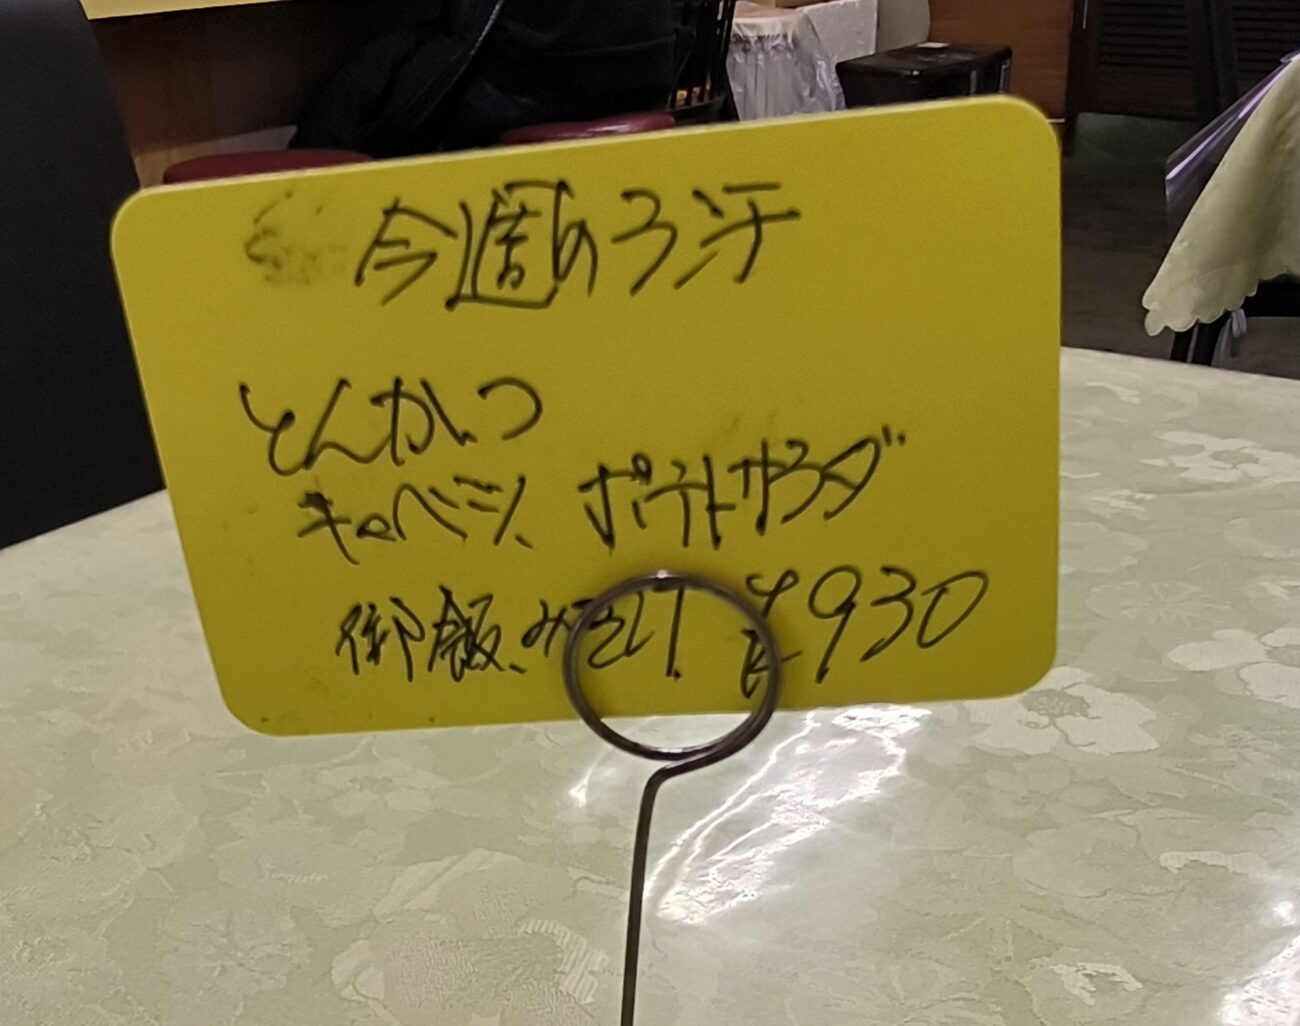 今週のランチ
とんかつ
キャベツ、ポテトサラダ
御飯、みそ汁 ¥930